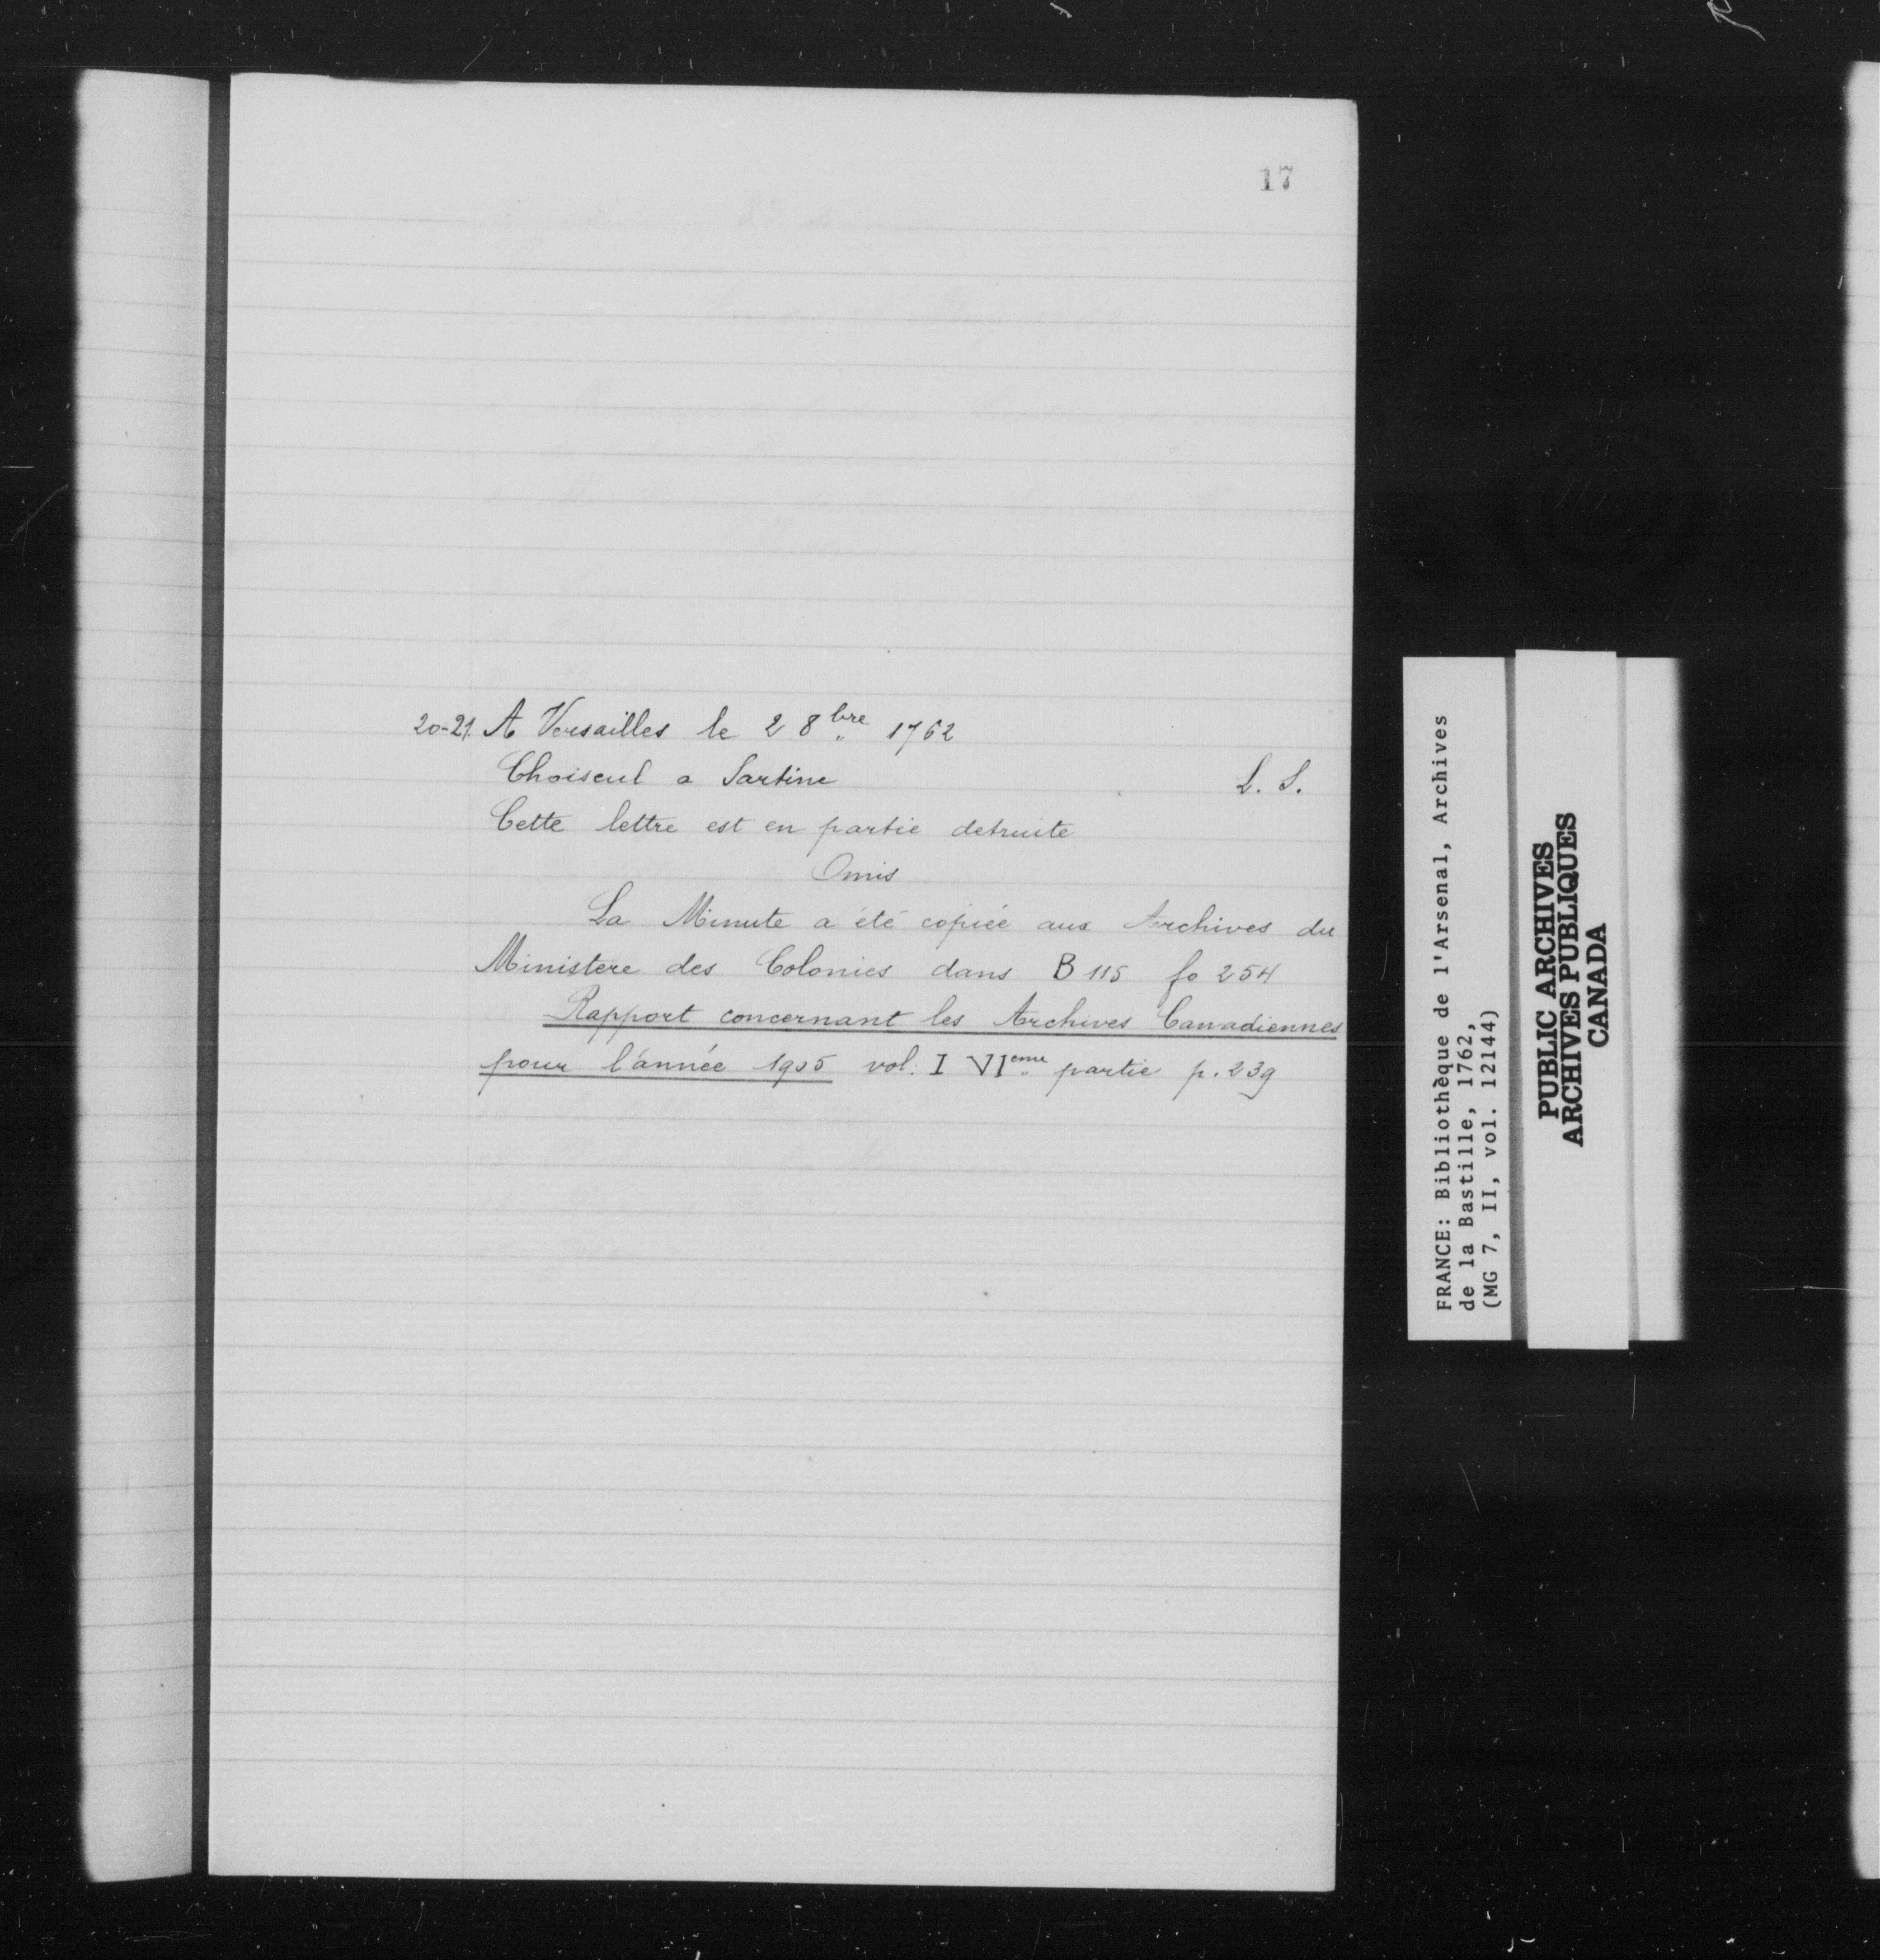 17
20-21. A Versailles le 2 8bre 1762
Choiseul a Sartine L. S.
Cette lettre est en partie detruite
Omis
La Minute a été copiée aux Archives du
Ministere des Colonies dans B 115 fo 254
Rapport concernant les Archives Canadiennes
pour l'année 1905 vol. I VIeme partie p. 239
FRANCE: Bibliothèque de l'Arsenal, Archives
de la Bastille, 1762,
(MG 7, II, vol. 12144)
PUBLIC ARCHIVES
ARCHIVES PUBLIQUES
CANADA